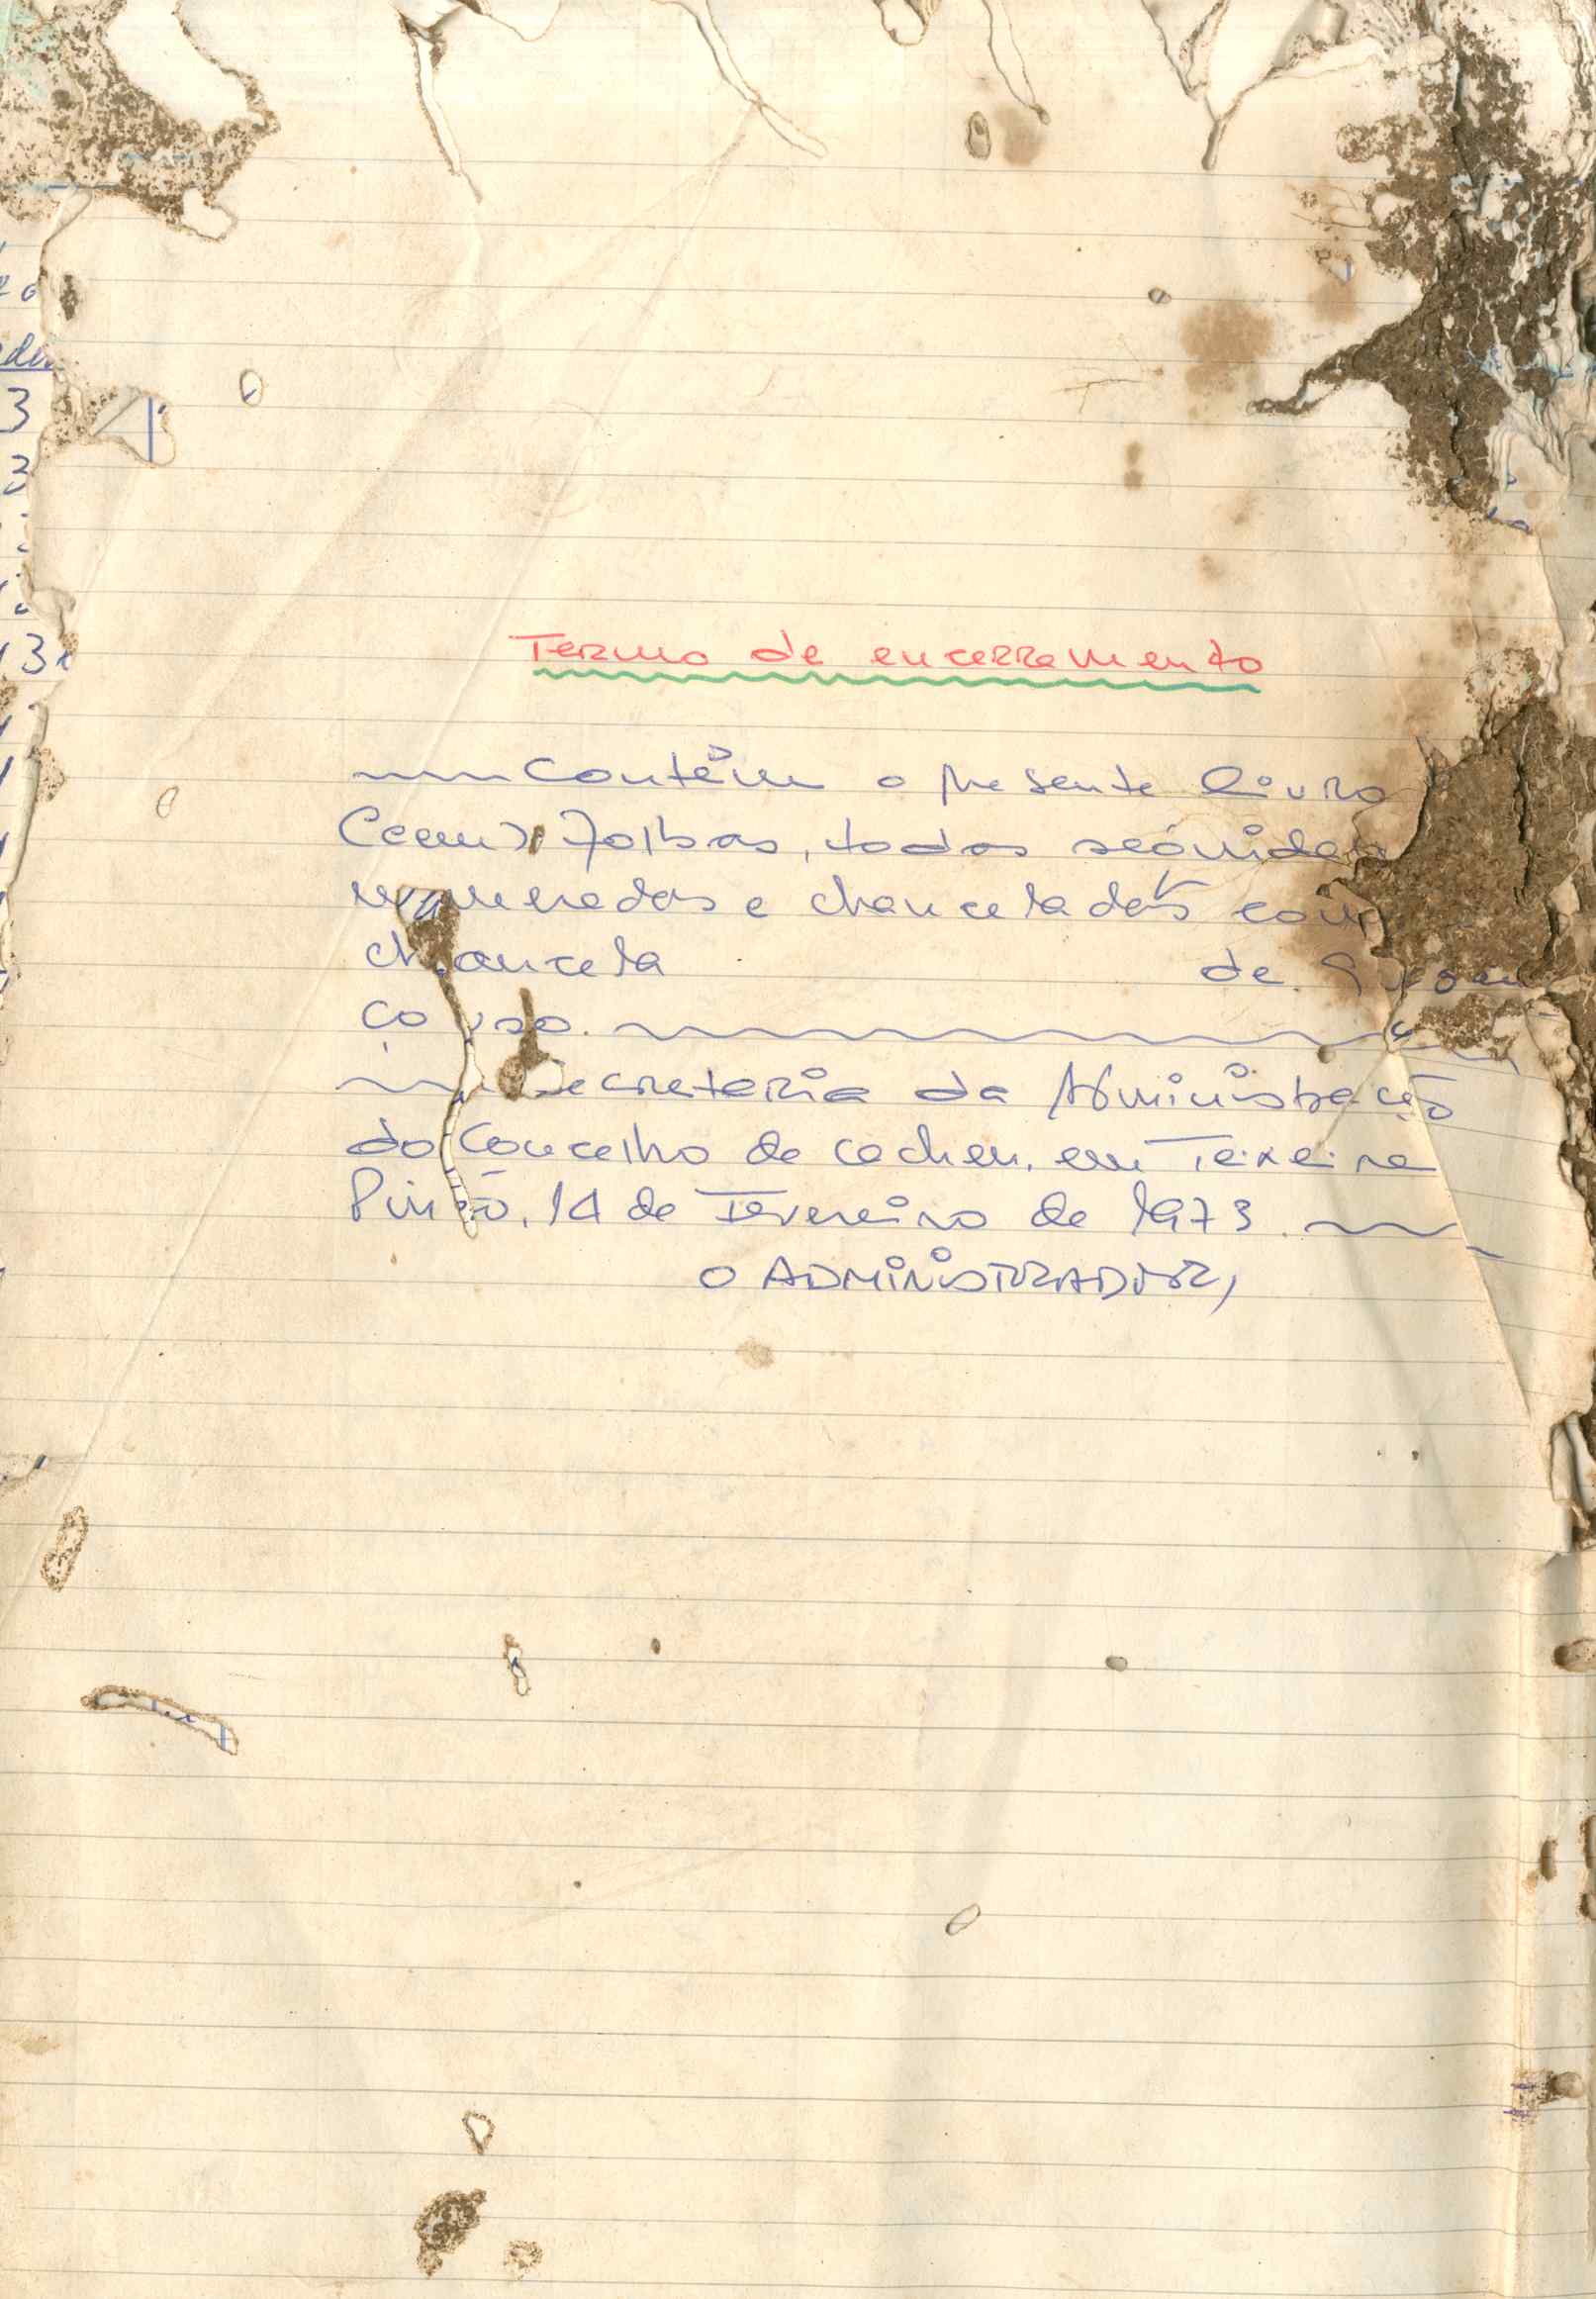 Termo de encerramento
Contêm o presente livro
(cem) folhas, todas seguidas
numeradas e chanceladas com
chancela de
ço uso.
Secretaria da Administração
do Concelho de Cacheu, em Teixeira
Pinto, 14 de Fevereiro de 1973.
O ADMINISTRADOR,